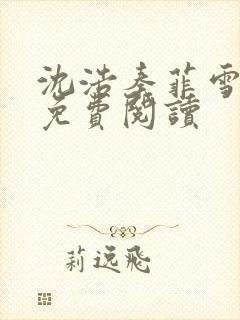 沈浩秦菲雪
免費閱讀
莉逸飛